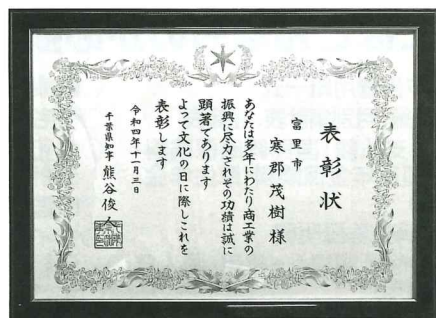 表彰状
富里市
寒郡茂樹様
あなたは多年にわたり商工業の
振興に尽力されその功績は誠に
顕著であります
よって文化の日に際しこれを
表彰します
令和四年十一月三日
千葉県知事 熊谷俊人